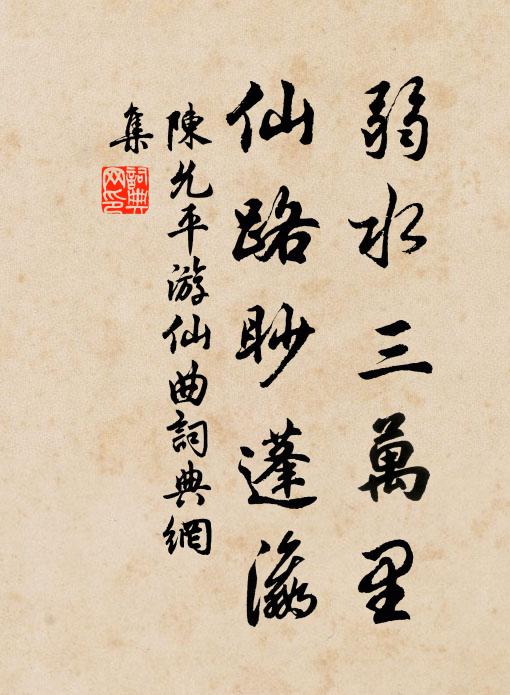 弱水三萬里
仙路眇蓬瀛
陳允平游仙曲詞典網
集
詞典网印